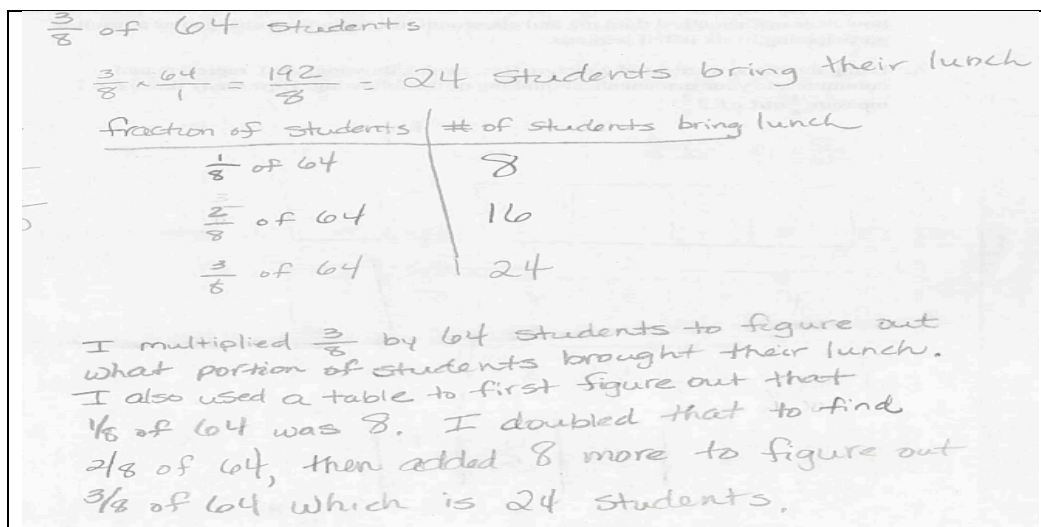 3/8 of 64 students
3/8 × 64/1 = 192/8 = 24 students bring their lunch
fraction of students | # of students bring lunch
1/8 of 64 | 8
2/8 of 64 | 16
3/8 of 64 | 24
I multiplied 3/8 by 64 students to figure out
what portion of students brought their lunch.
I also used a table to first figure out that
1/8 of 64 was 8. I doubled that to find
2/8 of 64, then added 8 more to figure out
3/8 of 64 which is 24 students.